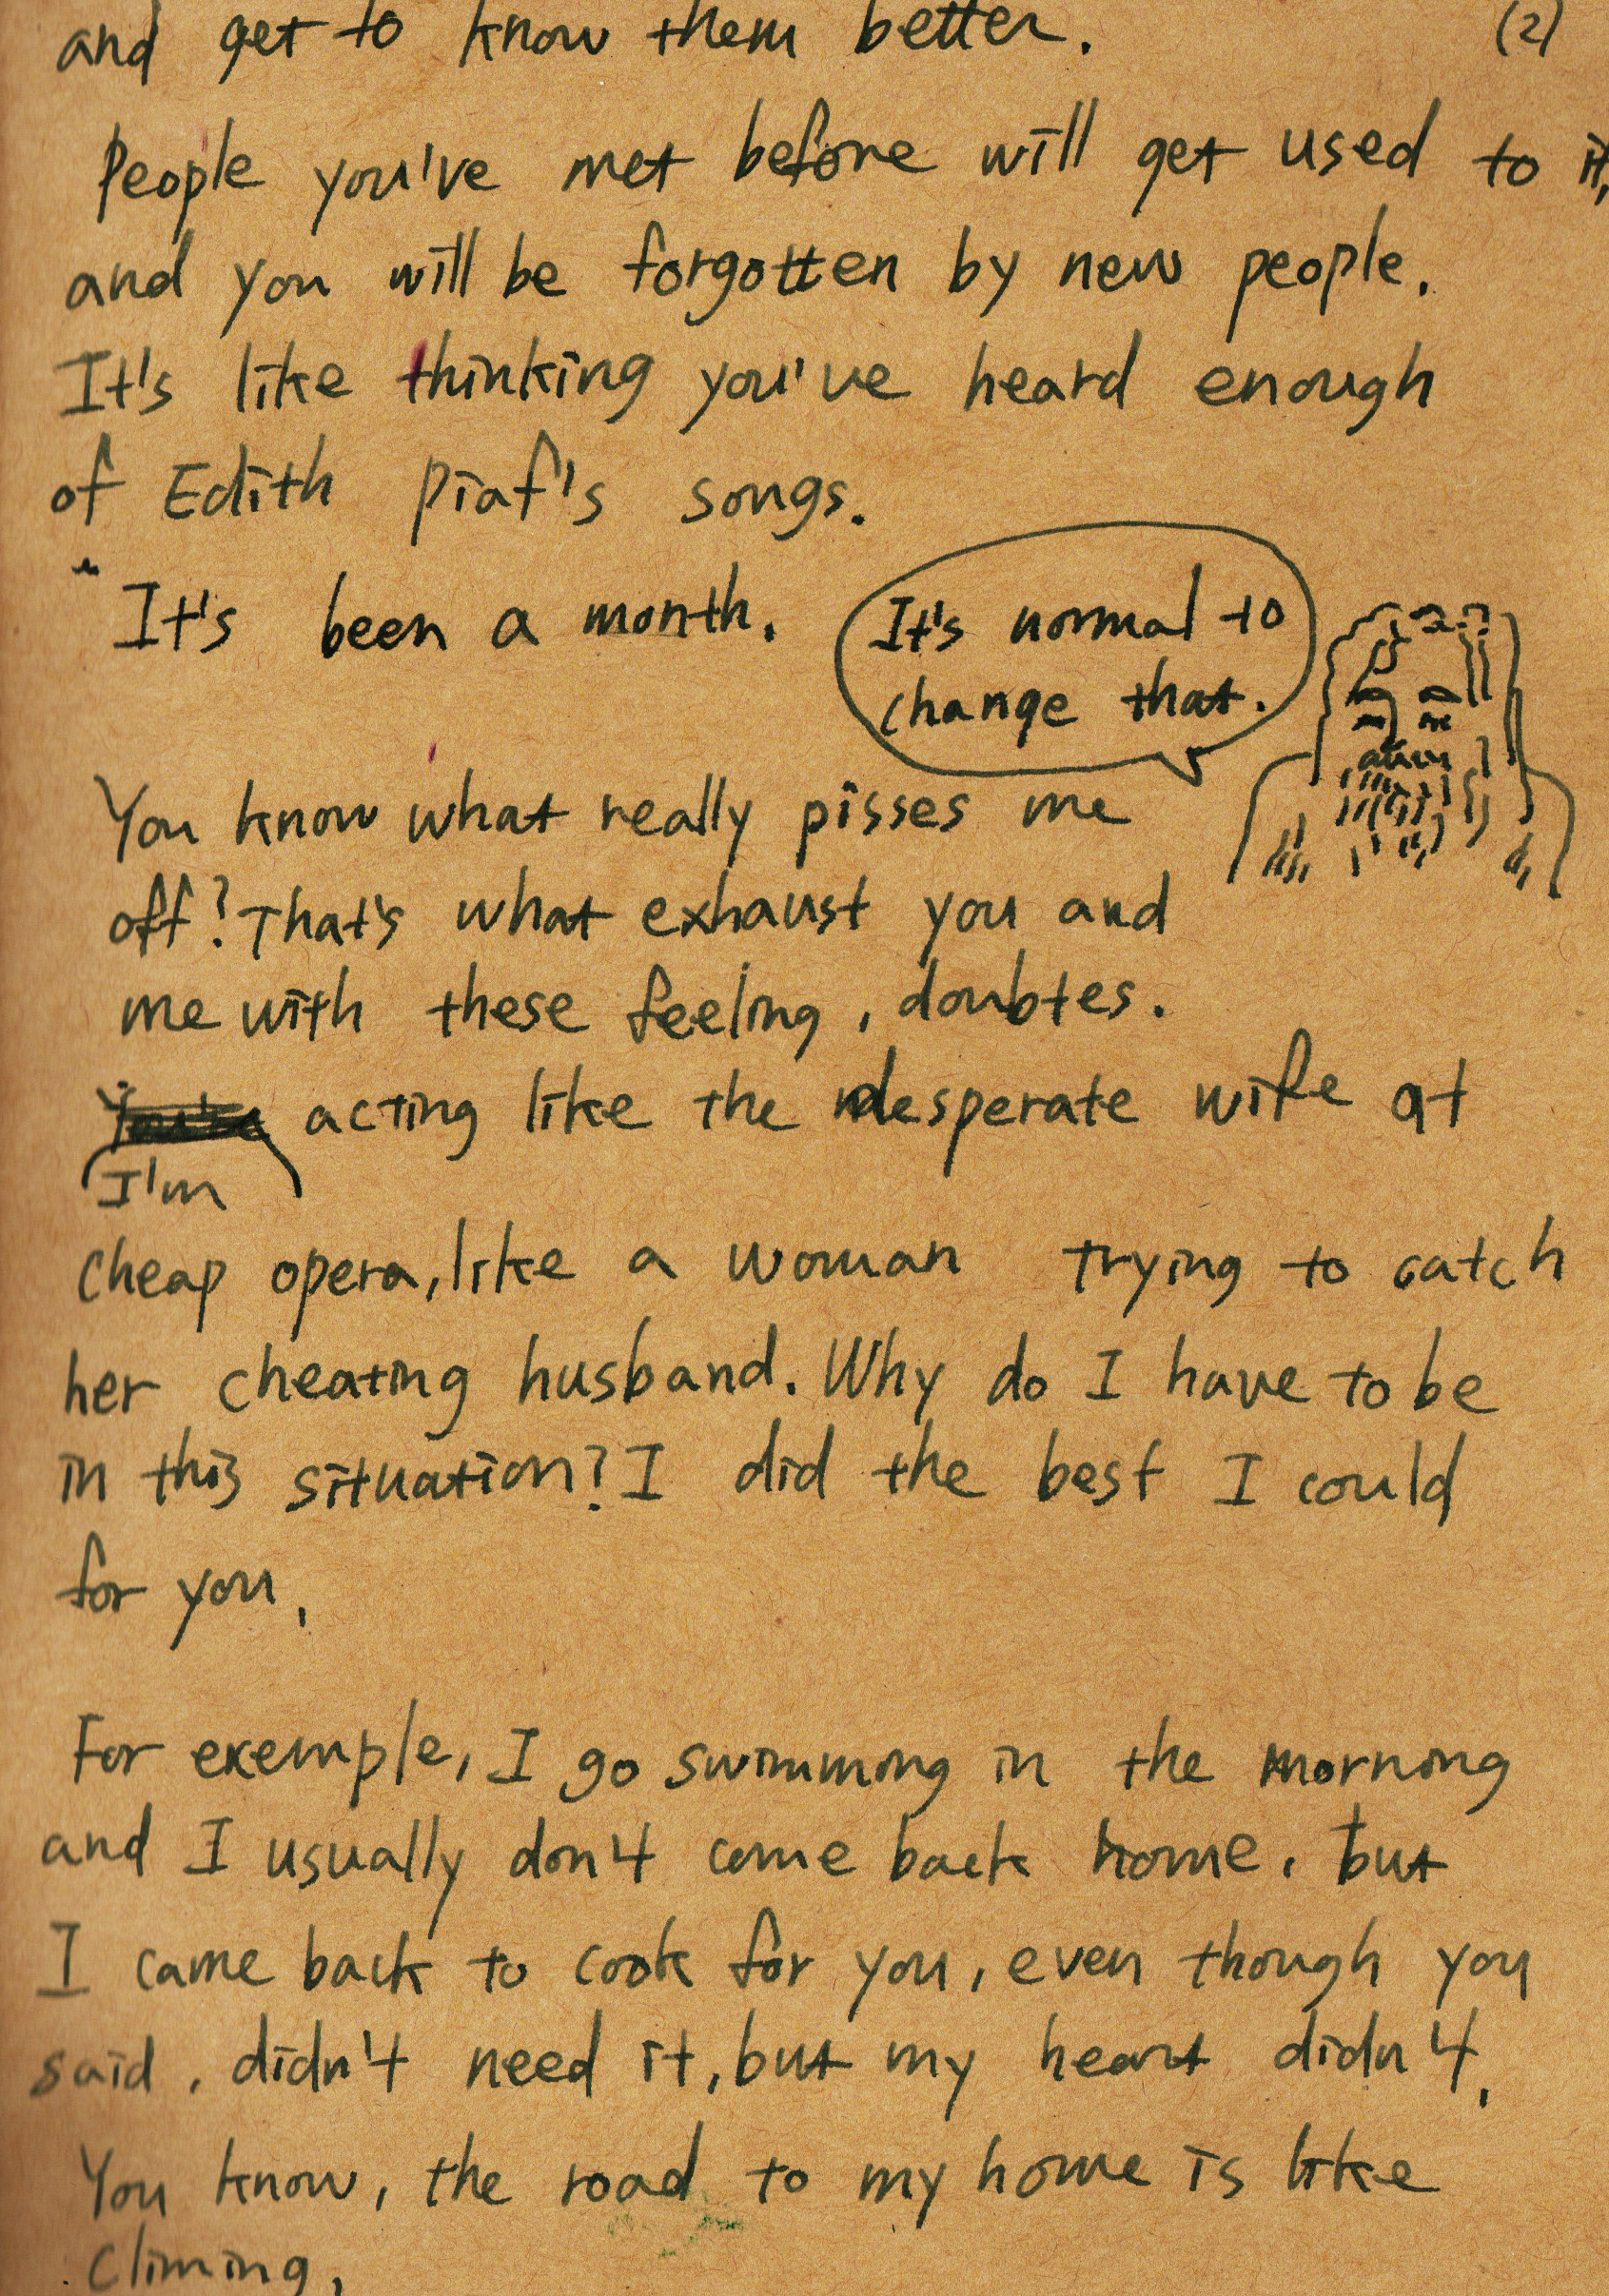 and get to know them better.
(2)
People you've met before will get used to it,
and you will be forgotten by new people.
It's like thinking you've heard enough
of Edith Piaf's songs.
It's been a month.
It's normal to
change that.
You know what really pisses me
off? That's what exhaust you and
me with these feeling, doubtes.
You're acting like the desperate wife at
I'm
cheap opera, like a woman trying to catch
her cheating husband. Why do I have to be
in this situation? I did the best I could
for you,
For exemple, I go swimming in the morning
and I usually don't come back home, but
I came back to cook for you, even though you
said, didn't need it, but my heart didn't,
You know, the road to my home is like
climing,